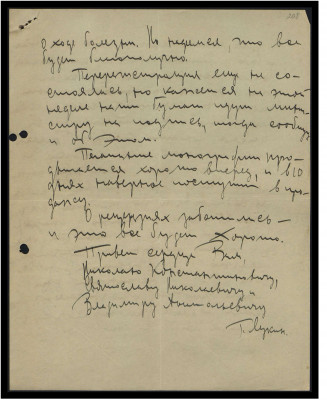 о ходе болезни. Но надеемся, что все
будет благополучно.
Перерегистрация еще не со-
стоялась, но кажется на этой
неделе наши бумаги пойдут мини-
стру на подпись, тогда сообщу
и об этом.
Печатание монографии про-
двигается хорошо вперед, и в 10
днях наверное поступит в про-
дажу.
О рецензиях заботились –
и это все будет хорошо.
Привет сердечн Вам,
Николаю Константиновичу,
Святославу Николаевичу и
Владимиру Анатольевичу
Г. Лукин